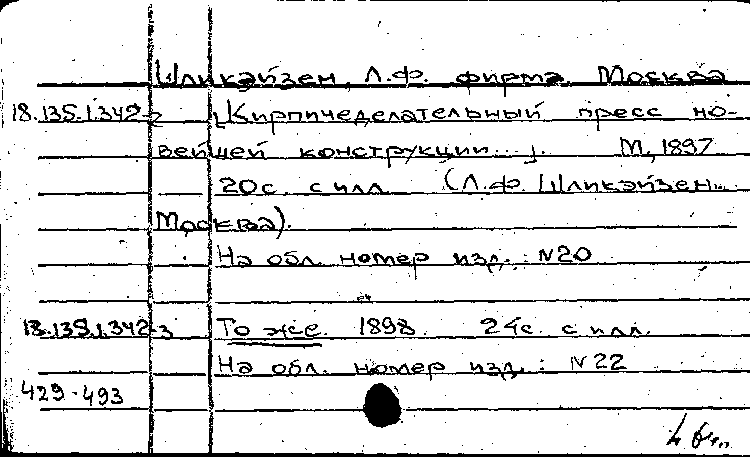 Шликэйзен, Л.Ф. фирма. Москва
18.135.1.342-2 [Кирпичеделательный пресс но-
вейшей конструкции...]. М, 1897
20 с. с илл. (Л.Ф. Шликэйзен.
Москва).
На обл. номер изд.: №20
18.135.1.342-3 То же. 1898. 24с. с илл.
На обл. номер изд.: №22
429-493